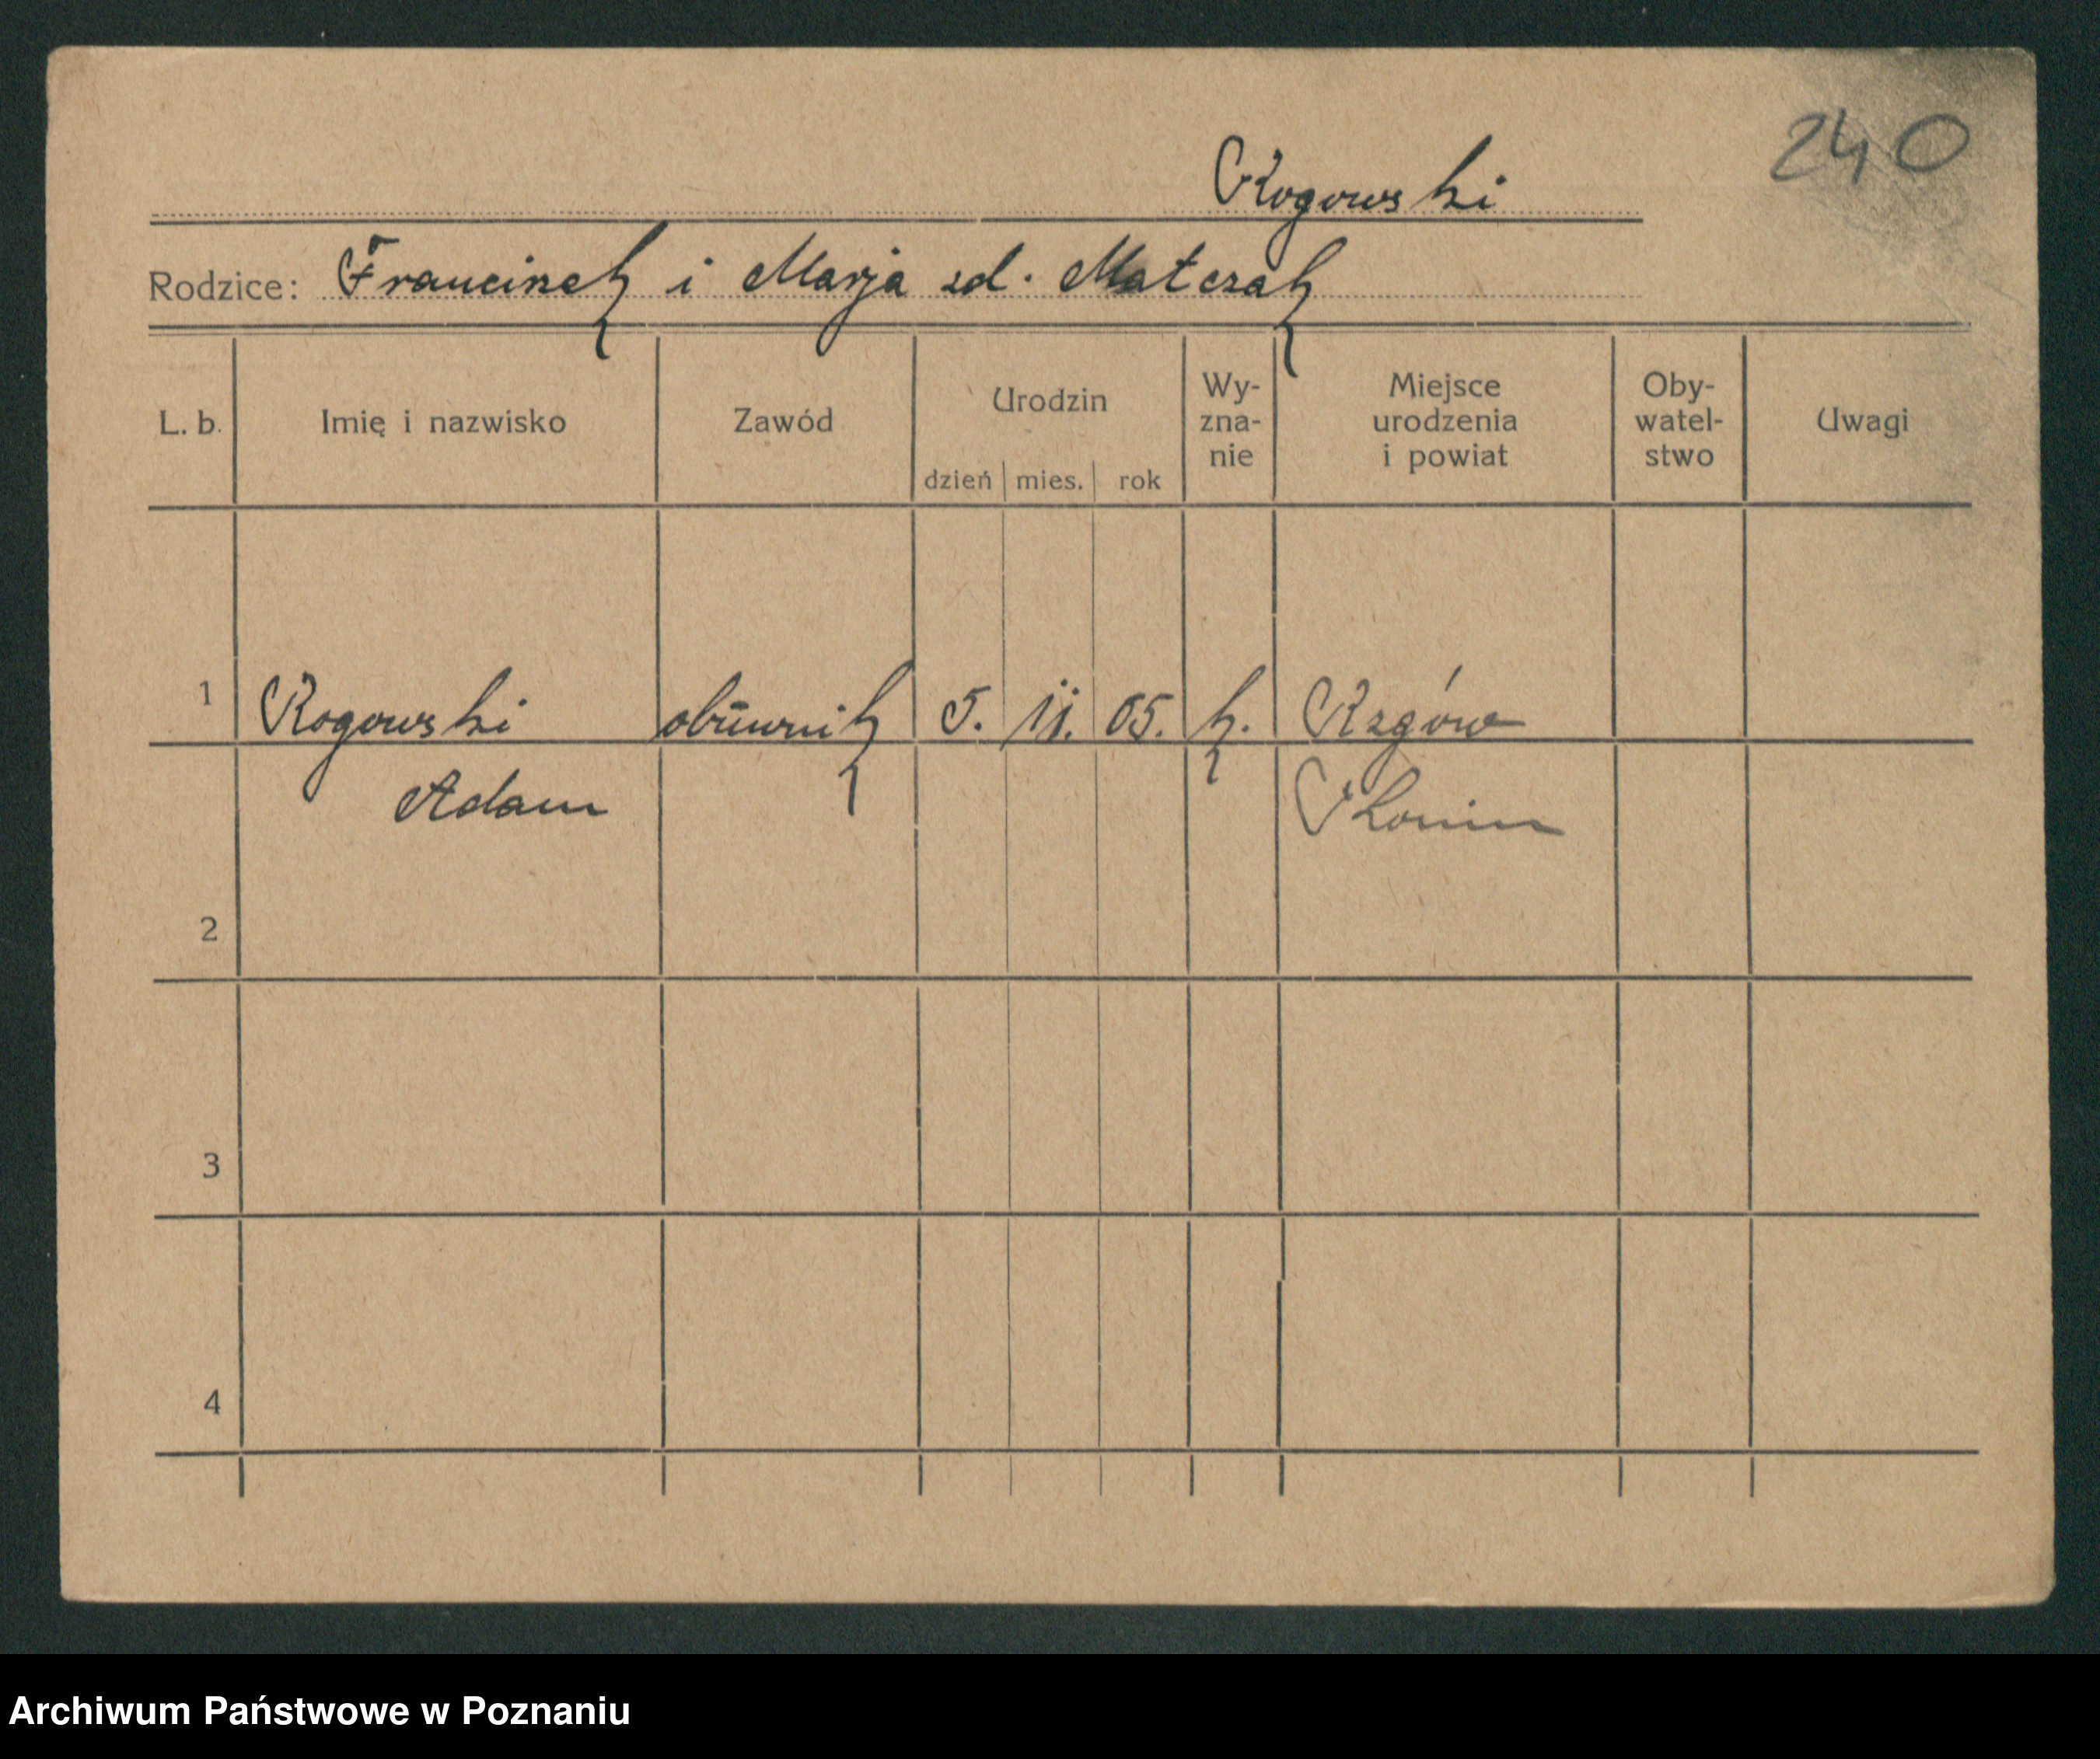 240
Rogowski
Rodzice: Franciszek i Marja zd. Matczak
L. b. Imię i nazwisko Zawód Urodzin dzień mies. rok Wy-zna-nie Miejsce urodzenia i powiat Oby-watel-stwo Uwagi
1 Rogowski obuwnik 5. 11. 05. k. Rzgów
Adam Konin
2
3
4
Archiwum Państwowe w Poznaniu